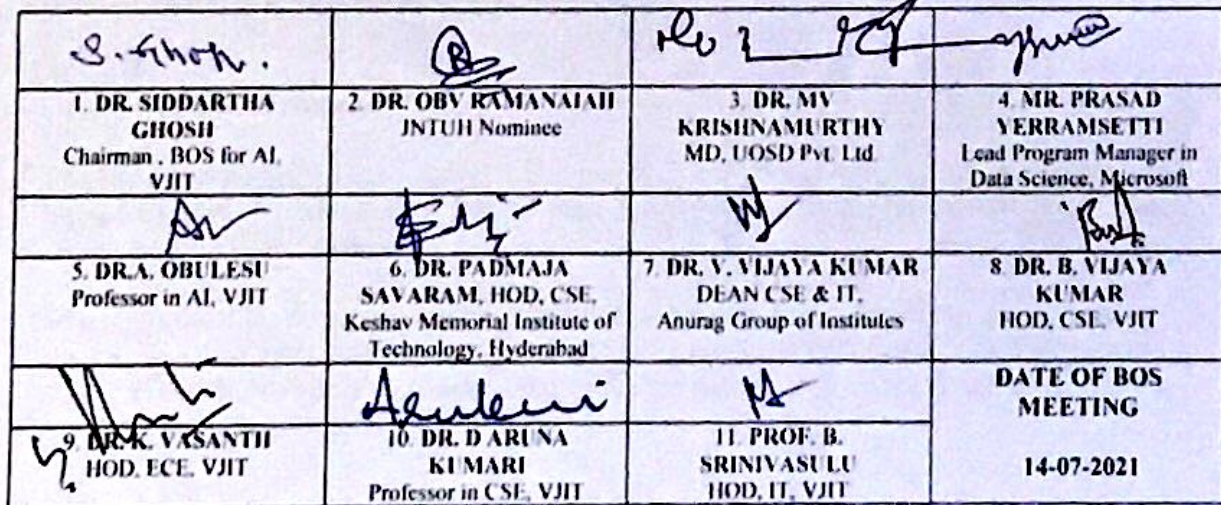 S. Ghosh.
1. DR. SIDDARTHA
GHOSH
Chairman , BOS for AI,
VJIT
2. DR. OBV RAMANAIAH
JNTUH Nominee
3. DR. MV
KRISHNAMURTHY
MD, UOSD Pvt. Ltd
4. MR. PRASAD
YERRAMSETTI
Lead Program Manager in
Data Science, Microsoft
5. DR.A. OBULESU
Professor in AI, VJIT
6. DR. PADMAJA
SAVARAM, HOD, CSE,
Keshav Memorial Institute of
Technology, Hyderabad
7. DR. V. VIJAYA KUMAR
DEAN CSE & IT,
Anurag Group of Institutes
8. DR. B. VIJAYA
KUMAR
HOD, CSE, VJIT
9. DR. K. VASANTH
HOD, ECE, VJIT
10. DR. D ARUNA
KUMARI
Professor in CSE, VJIT
11. PROF. B.
SRINIVASULU
HOD, IT, VJIT
DATE OF BOS
MEETING
14-07-2021